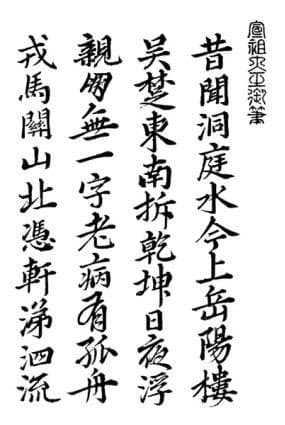 宣祖大王御筆
昔聞洞庭水今上岳陽樓
吳楚東南拆乾坤日夜浮
親朋無一字老病有孤舟
戎馬關山北憑軒涕泗流